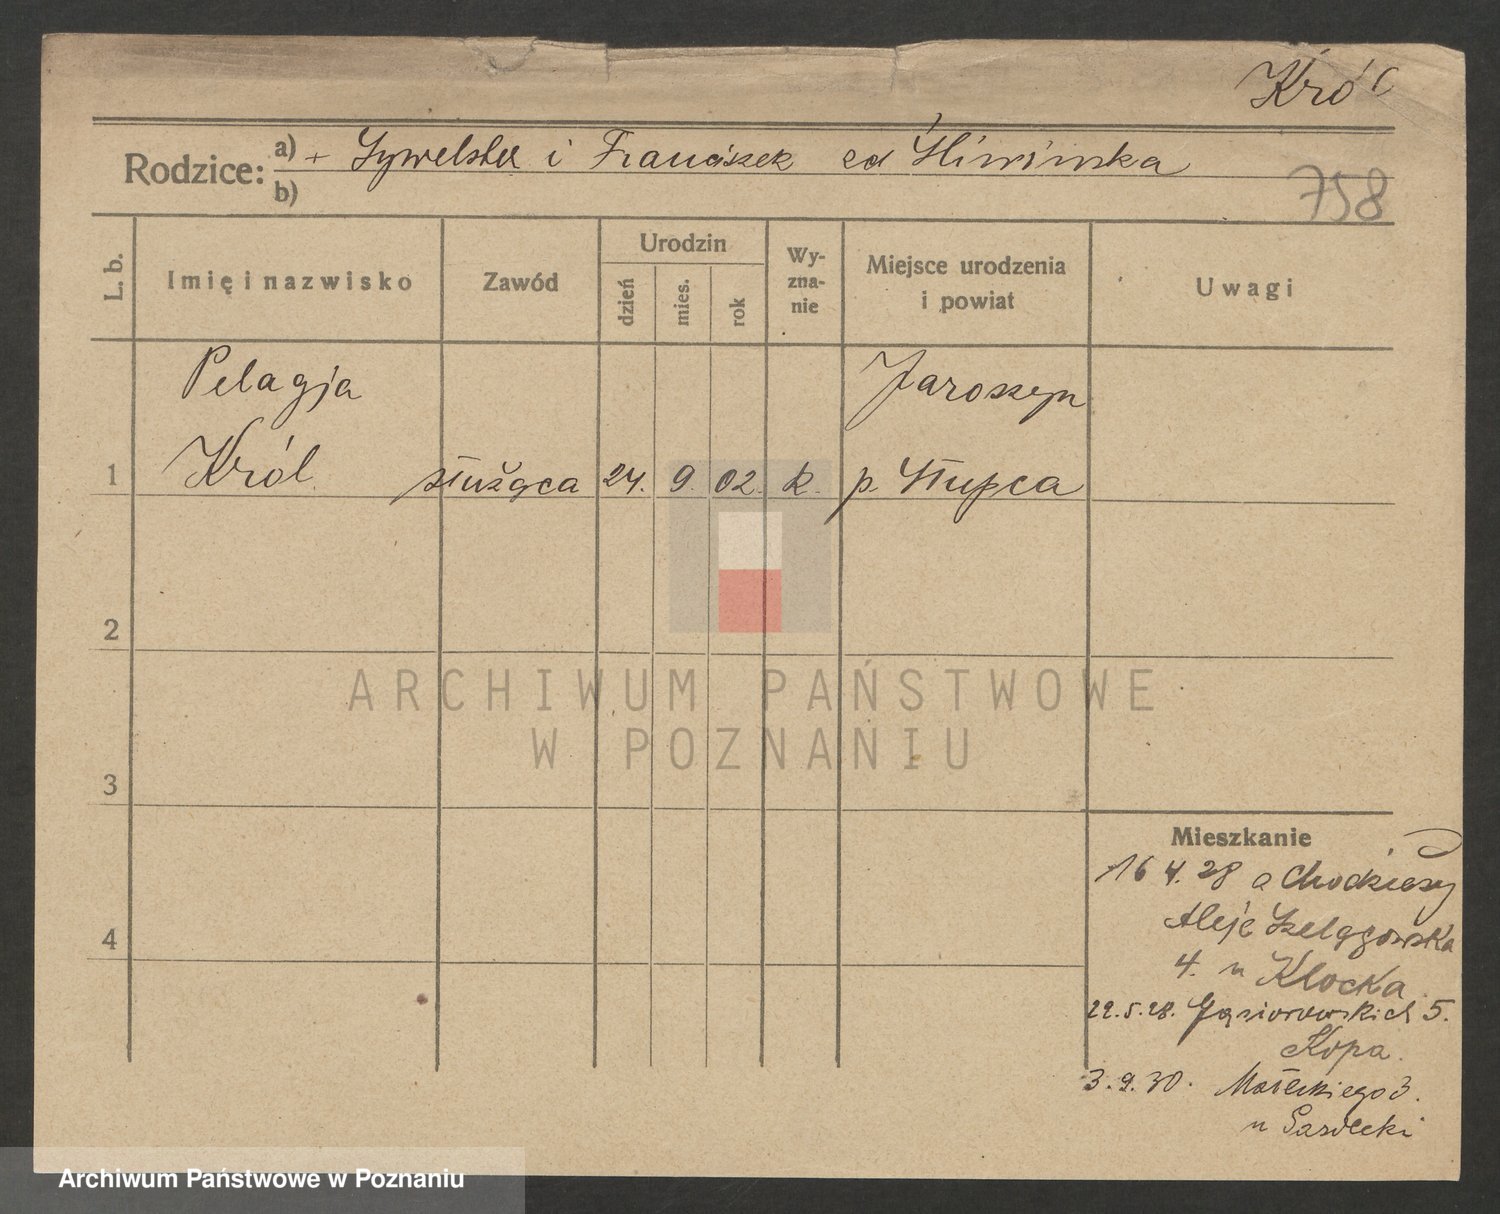 Król
Rodzice: a) + Sywelster i Franciszek zd Śliwinska
b)
758
L. b.
Imię i nazwisko
Zawód
Urodzin
dzień
mies.
rok
Wy-
zna-
nie
Miejsce urodzenia
i powiat
Uwagi
Pelagja
Jaroszyn
1 Król służąca 24. 9. 02. k. p. Słupca
2
3
4
ARCHIWUM PAŃSTWOWE
W POZNANIU
Mieszkanie
16 4. 28 a Chodzieży
Aleje Szelągowska
4. u Klocka
22.5.28. Gąsiorowskich 5.
Kopa.
3.9.30. Małeckiego 3.
u
Archiwum Państwowe w Poznaniu